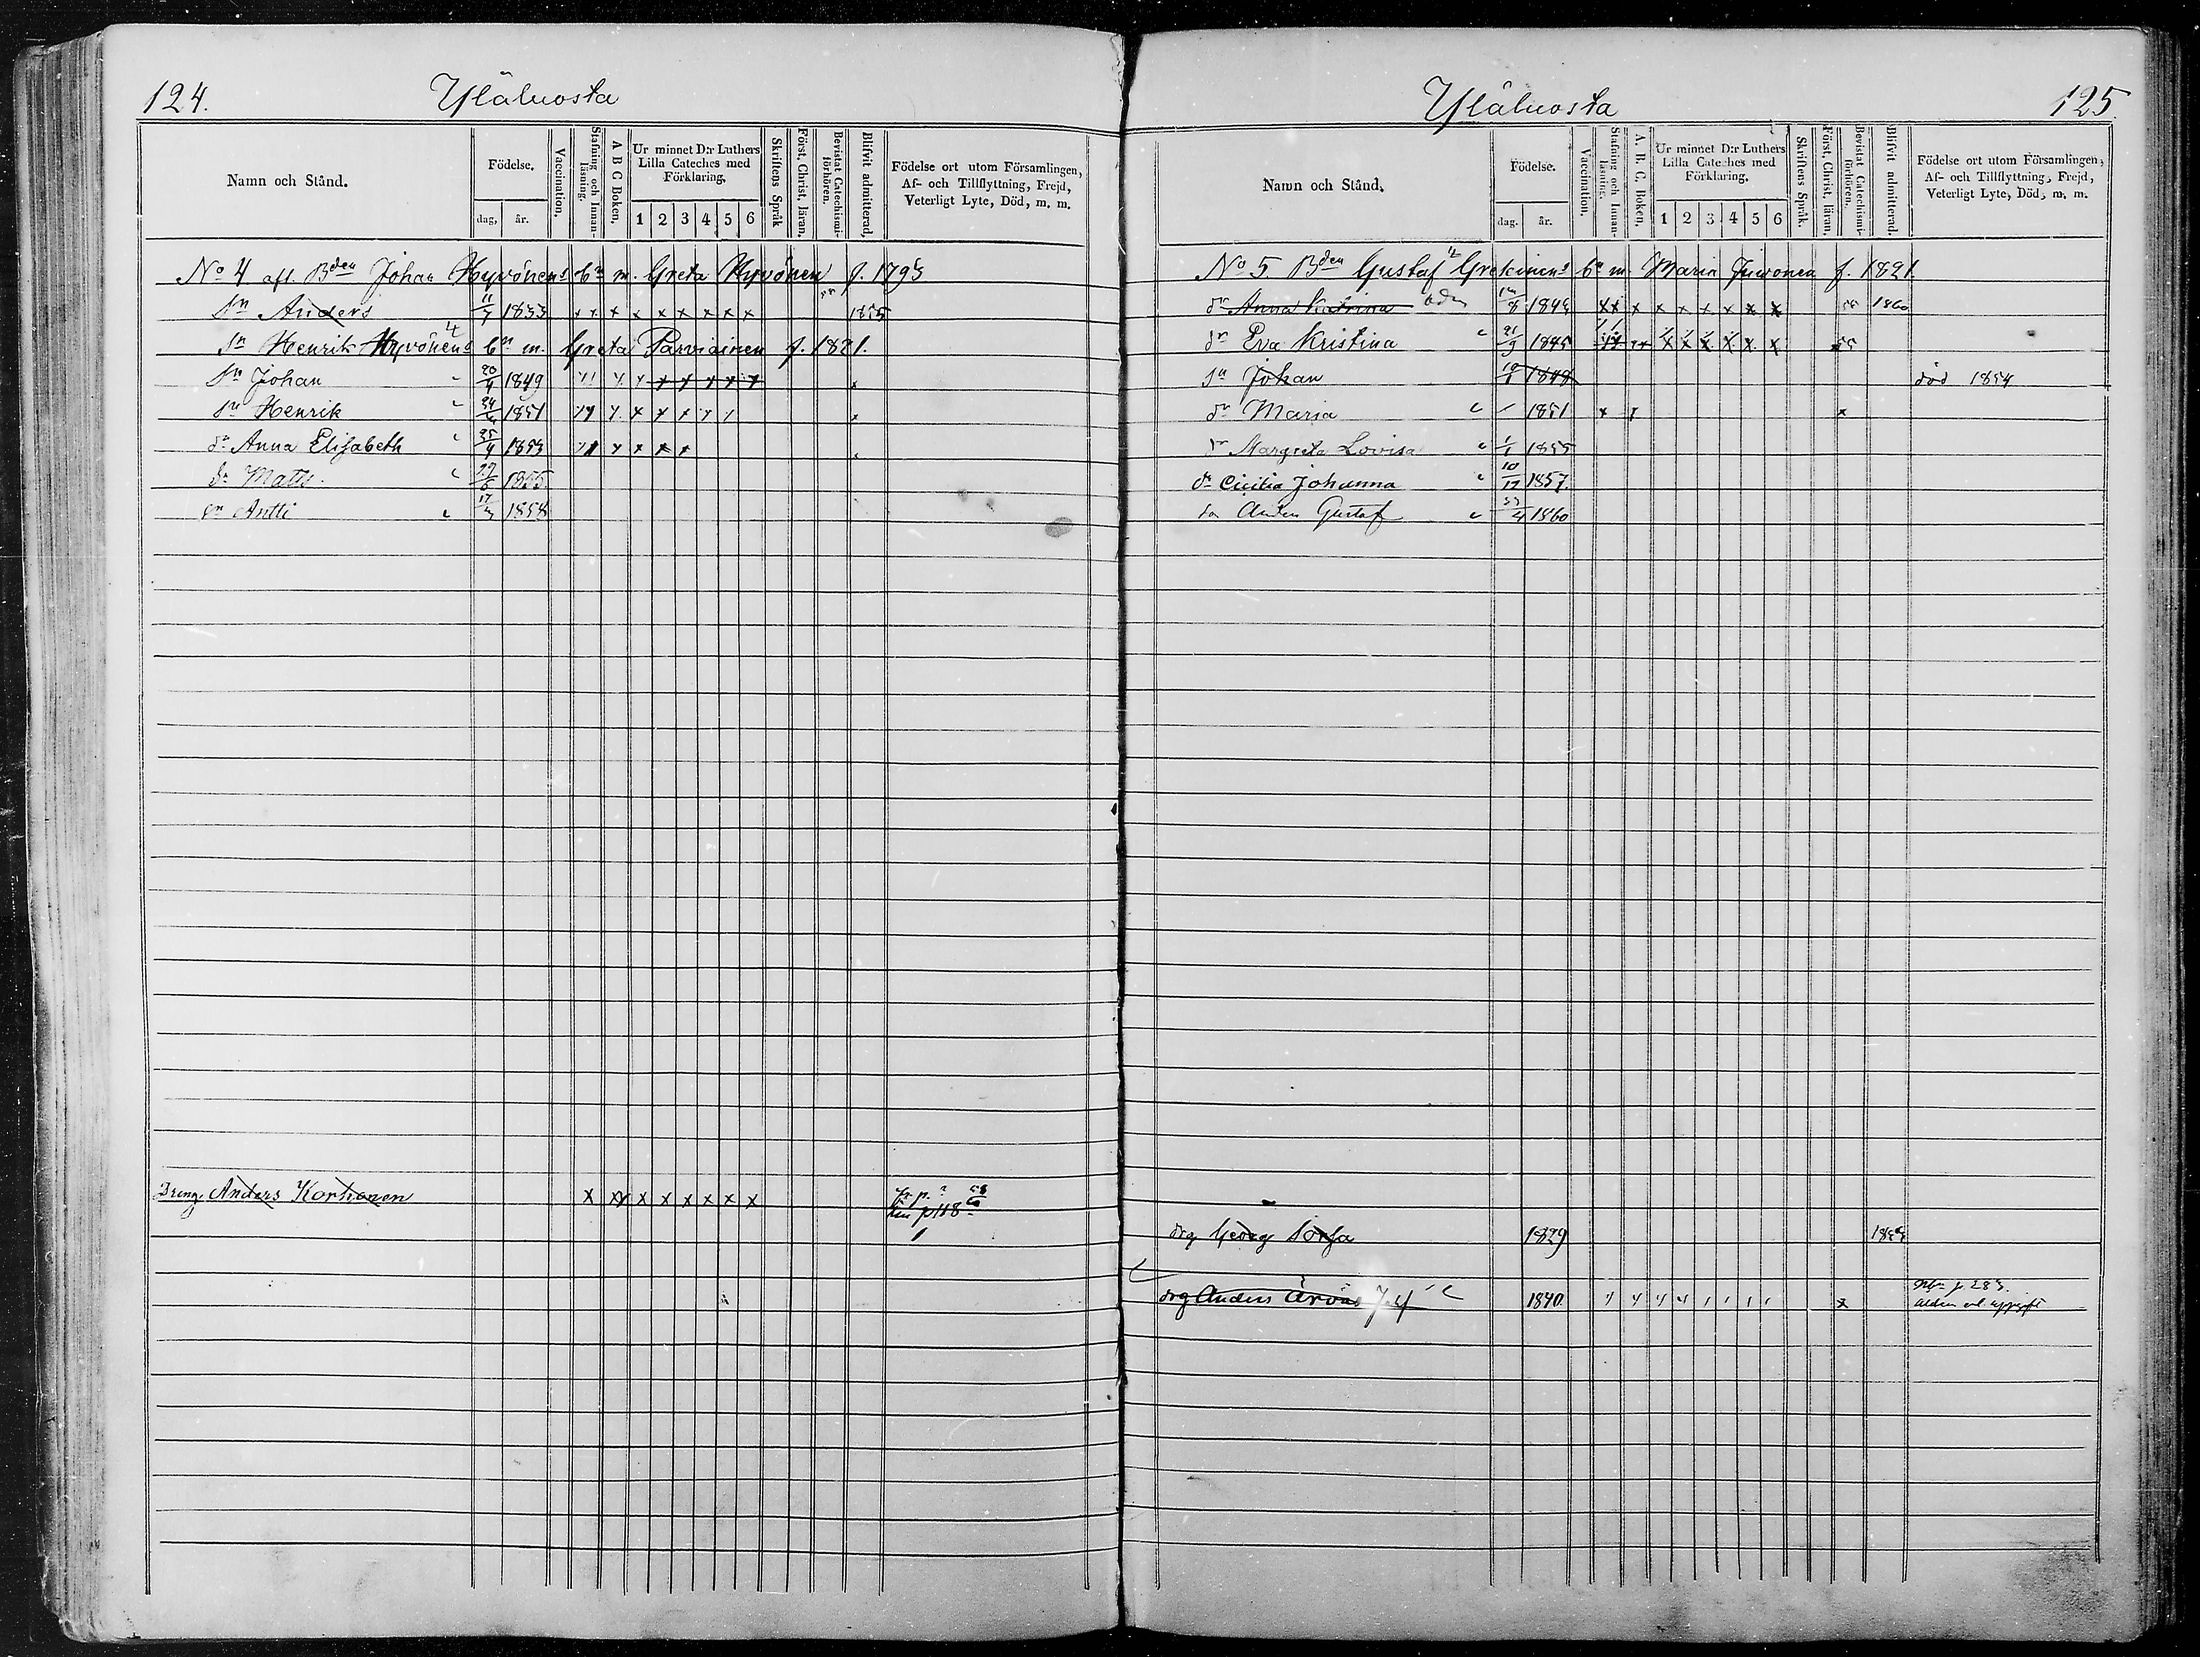 124.
Yläluosta
Namn och Stånd.
Födelse.
dag, år.
Vaccination,
Stafning och Innan-läsning.
A B C Boken,
Ur minnet D:r Luthers Lilla Cateches med Förklaring,
1 2 3 4 5 6
Skriftens Språk
Först, Christ, läran,
Bevistat Catechismi-förhören.
Blifvit admitterad,
Födelse ort utom Församlingen, Af- och Tillflyttning, Frejd, Veterligt Lyte, Död, m. m.
No 4 afl. Bden Johan Hyvönens bn m. Greta Hyvönen f. 1793
Sn Anders 11/7 1833 x x x x x x x x x 1855
Sn Henrik Hyvönens bn m. Greta Parviainen f. 1821.
Sn Johan 20/4 1849
Sn Henrik 1851
dr Anna Elisabeth 25/4 1853
Matts 1855
sn Antti 1858
Dreng Anders Korhonen x x x x x x x x
p 118
125
Yläluosta
Namn och Stånd,
Födelse.
dag. år.
Vaccination,
Stafning och Innan-läsning.
A. B. C. Boken,
Ur minnet D:r Luthers Lilla Cateches med Förklaring,
1 2 3 4 5 6
Skriftens Språk.
Först, Christ, läran,
Bevistat Catechismi-förhören.
Blifvit admitterad.
Födelse ort utom Församlingen, Af- och Tillflyttning, Frejd, Veterligt Lyte, Död, m. m.
No 5 Bden Gustaf bn m. Maria f. 1821.
dr Anna Katrina 1844 1860
dr Eva Kristina 21/9 1845
Sn Johan 1848 död 1854
dr Maria 1851
Margreta Lovisa 1/1 1855
dr Cicilia Johanna 10/12 1857.
Gustaf 1860
drg Georg Sorsa 1829
drg Anders 1840.